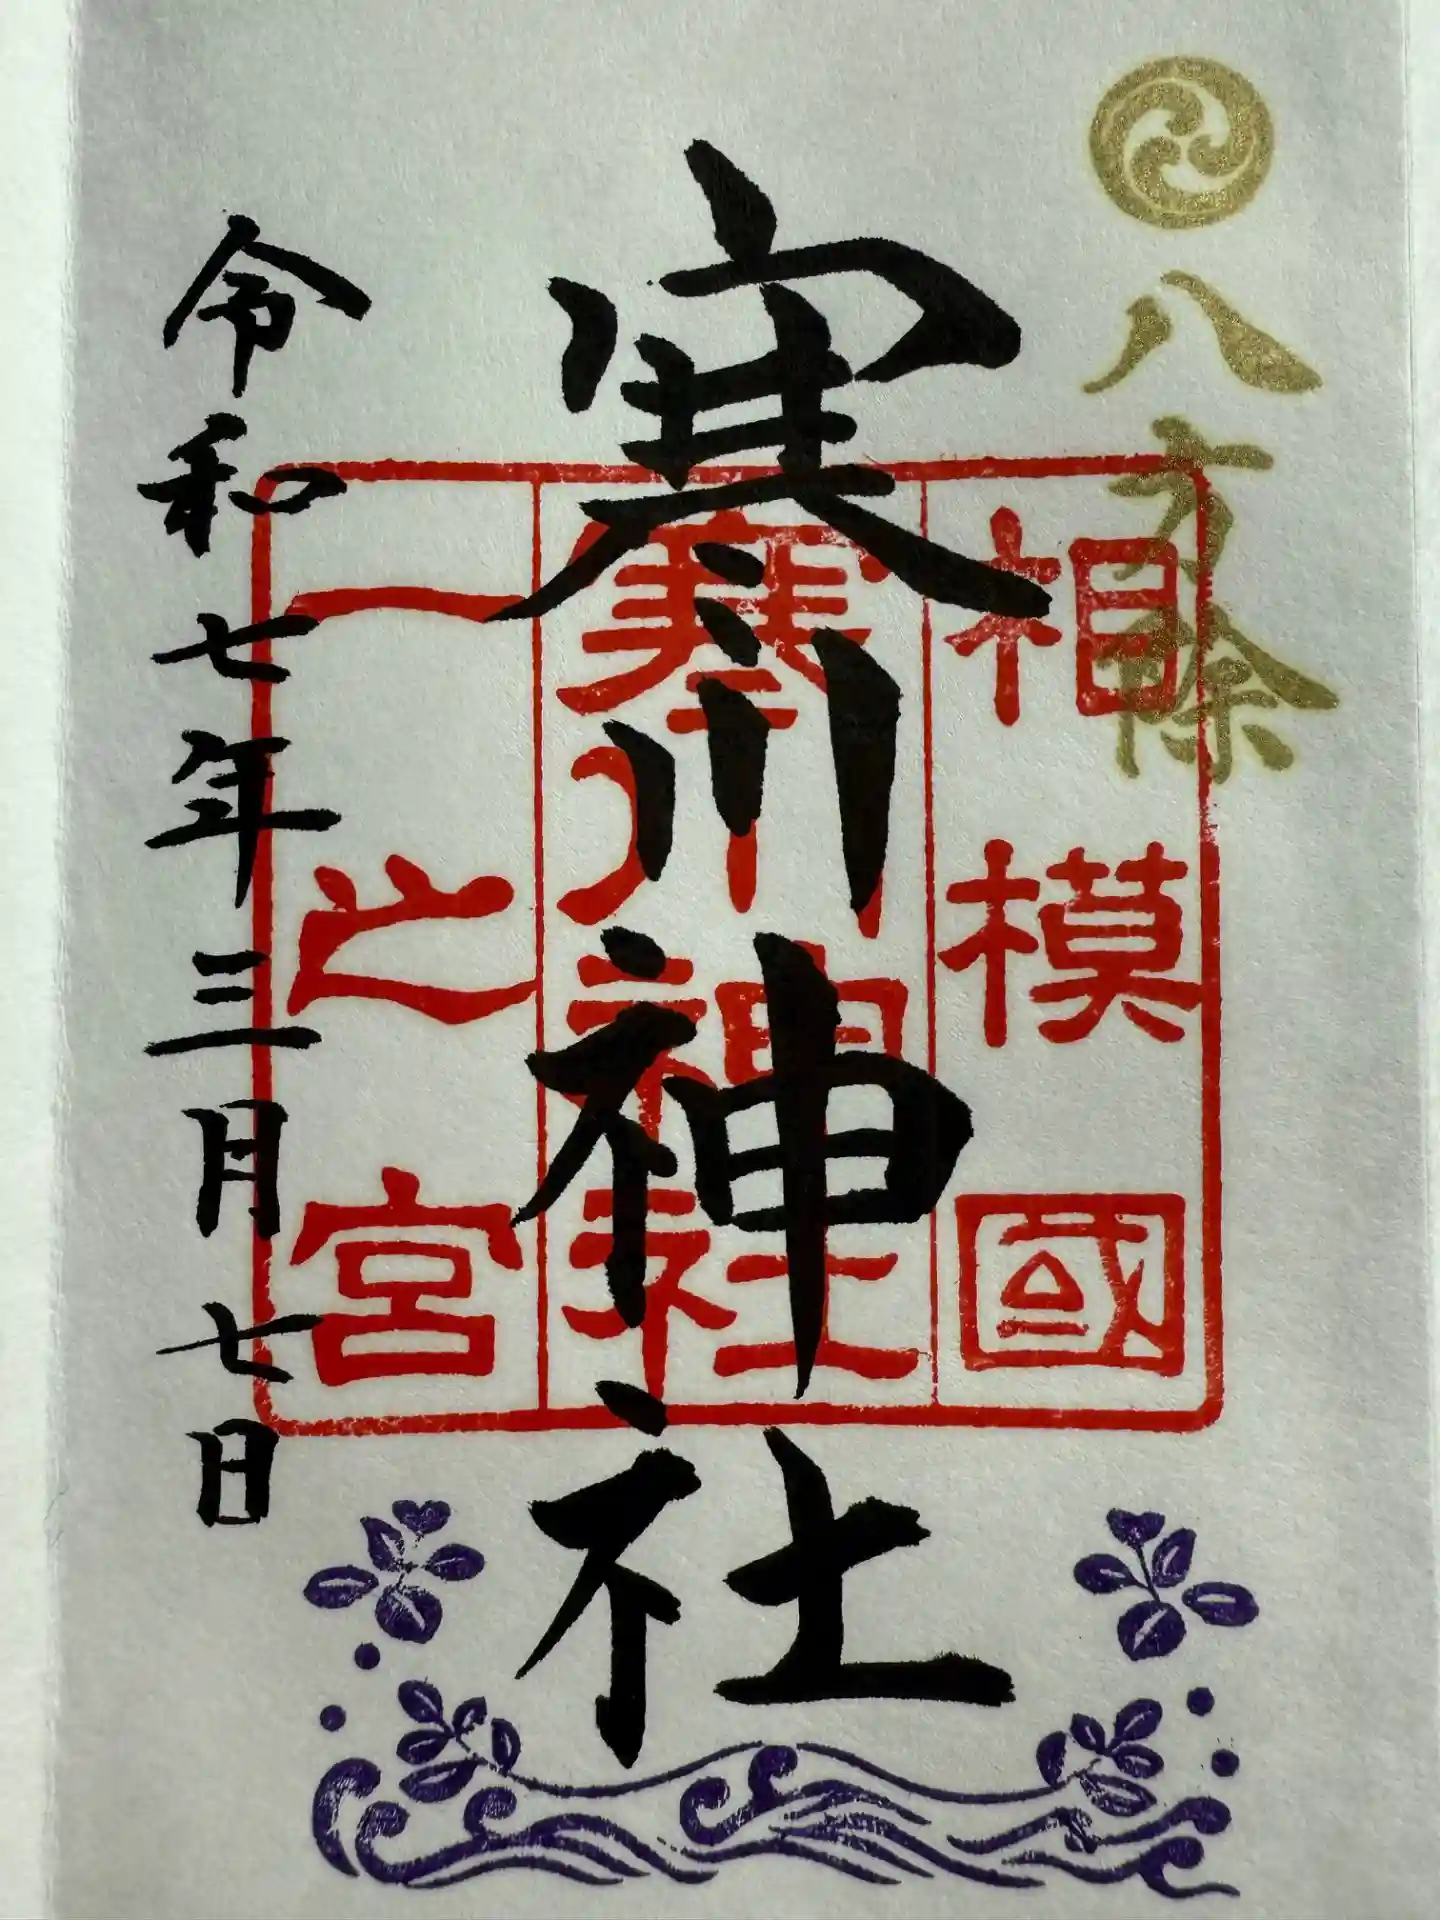 八方除
寒川神社
相模國
寒川神社
一之宮
令和七年三月七日